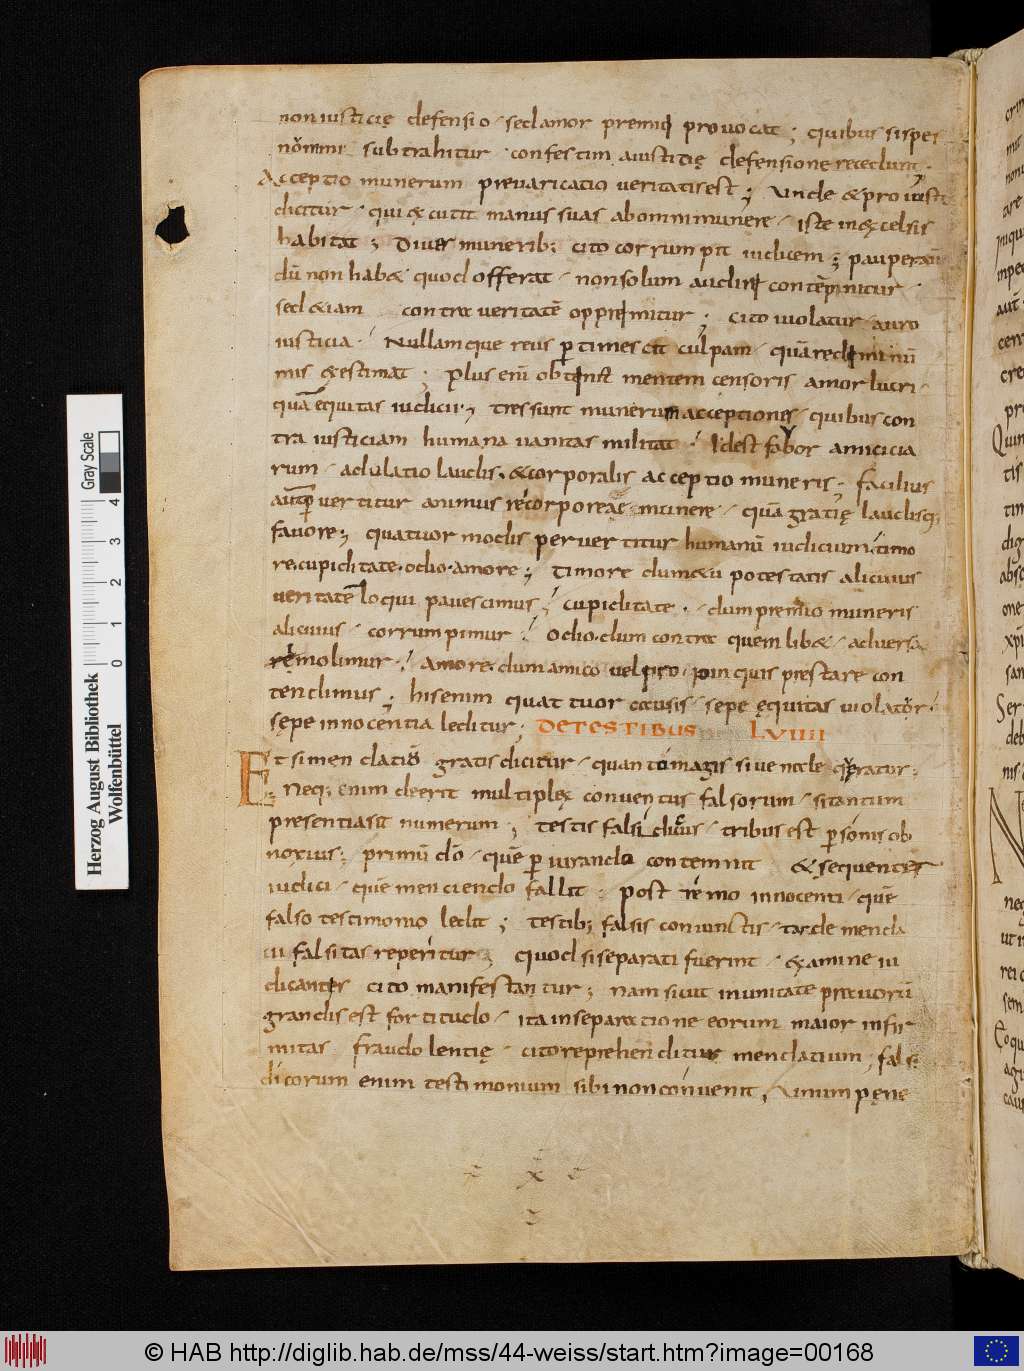 non iusticię defensio · sed amor premii provocat ; quibus si spes
nūmi subtrahitur · confestim a iustitię defensione recedunt .
Acceptio munerum prevaricatio veritatis est ; Unde & pro iusto
dicitur · qui excutit manus suas ab omni munere · iste in excelsis
habitat ; Dives munerib; cito corrumpit iudicem ; pauper autē
dū non hab& quod offerat · non solum audiri contēpnitur
sed &iam contra veritatē opprimitur ; Cito violatur auro
iusticia · Nullamque reus pertimescit culpam · quā redimi nū
mis existimat ; Plus enī obtinet mentem censoris amor lucri ·
quā equitas iudicii ; Tres sunt munerum acceptiones · quibus con
tra iusticiam humana vanitas militat · Id est favor amicicia
rum · adulatio laudis · & corporalis acceptio muneris ; facilius
autē pervertitur animus re corporeae munere · quā gratię laudisq;
favore ; quatuor modis pervertitur humanū iudicium · timo
re · cupiditate · odio · amore ; Timore dum metu potestatis alicuius
veritatē loqui pavescimus ; cupiditate · dum premio muneris
alicuius · corrumpimur · Odio · dum contra quem lib& · adversa
re molimur · Amore · dum amico vel propinquis prestare con
tendimus ; his enim quattuor causis · sepe ęquitas violatur ·
sępe innocentia leditur ; DE TESTIBUS LVIIII
Et si mendatio gratis dicitur · quanto magis si venale queratur ;
Neq; enim deerit multiplex conventus falsorum · si tantum
presentia sit numerum ; testis falsidicus · tribus est personis ob
noxius ; primū dō · quē periurando contemnit & sequenter
iudici · quē menciendo fallit ; postremo innocenti · quē
falso testimonio ledit ; testib; falsis coniunctis · tarde menda
cii falsitas reperitur ; quod si separati fuerint · examine iu
dicantis cito manifestantur ; nam sicut in unitate pravorū
grandis est fortitudo · ita in separatione eorum maior infir
mitas fraudolentię · cito reprehenditur mendatium ; fals
dicorum enim testimonium sibi non convenit , Unum pęne
Herzog August Bibliothek
Wolfenbüttel
Gray Scale
0 1 2 3 4
© HAB http://diglib.hab.de/mss/44-weiss/start.htm?image=00168